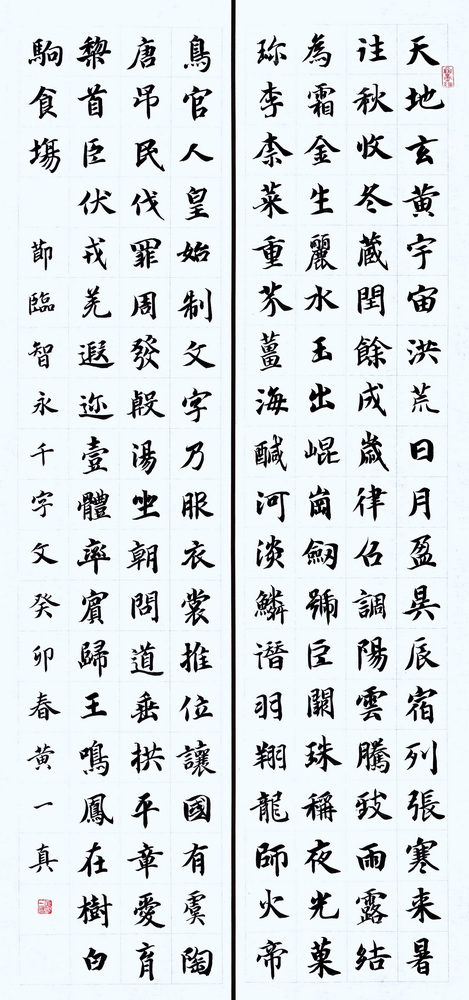 天地玄黃宇宙洪荒日月盈昃辰宿列張寒来暑
往秋收冬藏閏餘成歲律召調陽雲騰致雨露結
為霜金生麗水玉出崐崗劒號巨闕珠稱夜光菓
珎李柰菜重芥薑海醎河淡鱗潛羽翔龍師火帝
鳥官人皇始制文字乃服衣裳推位讓國有虞陶
唐吊民伐罪周發殷湯坐朝問道垂拱平章愛育
黎首臣伏戎羌遐迩壹體率賓歸王鳴鳳在樹白
駒食場 節臨智永千字文癸卯春黃一真